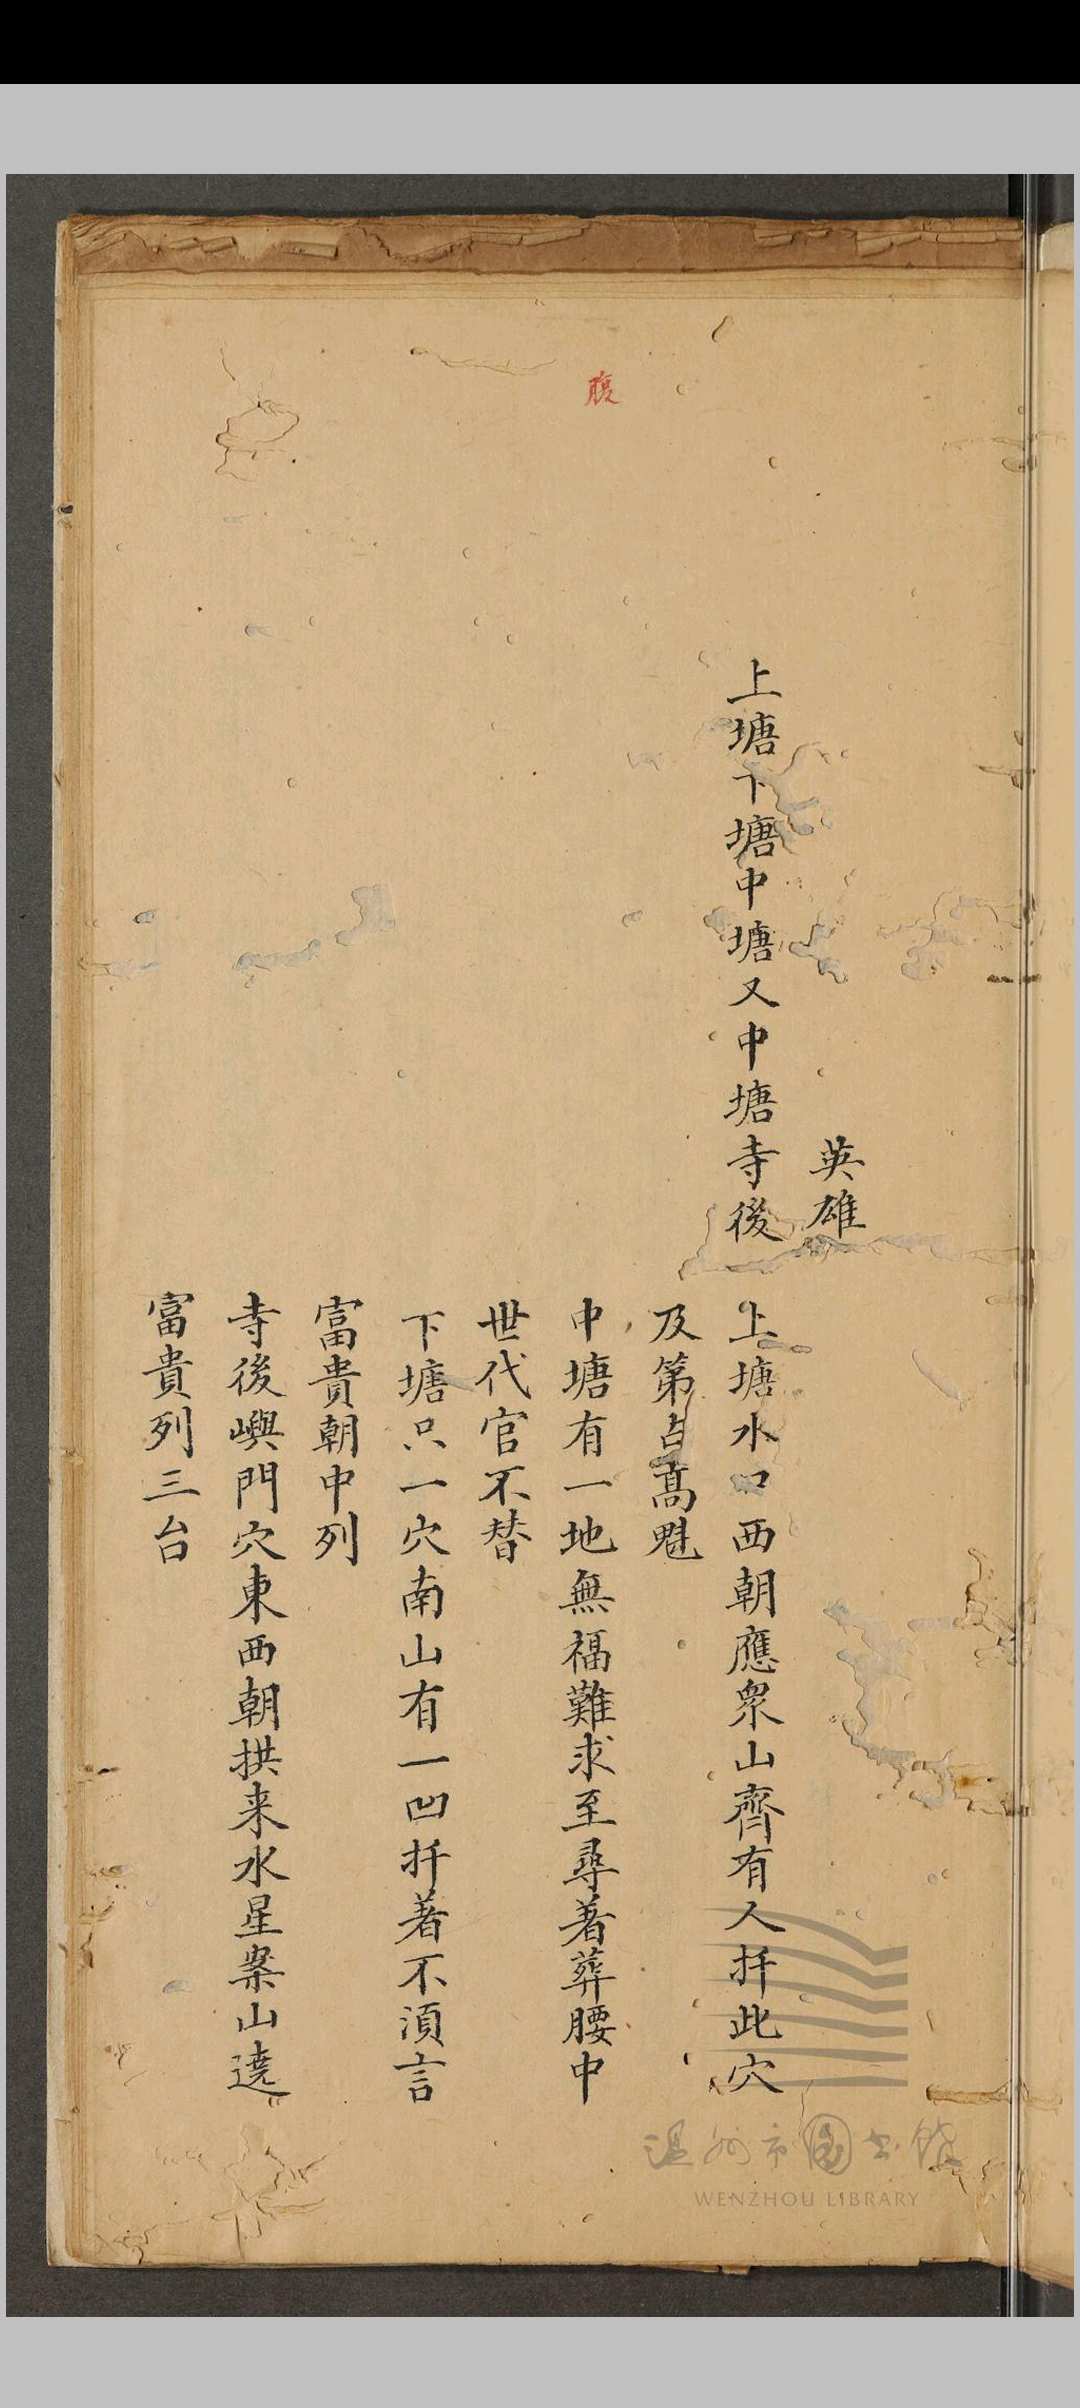 腹
英雄
上塘下塘中塘又中塘寺後
上塘水口西朝應眾山齊有人扦此穴
及第占高魁
中塘有一地無福難求至尋著葬腰中
世代官不替
下塘只一穴南山有一凹扦著不須言
富貴朝中列
寺後嶼門穴東西朝拱来水星案山遶
富貴列三台
温州市图书馆
WENZHOU LIBRARY